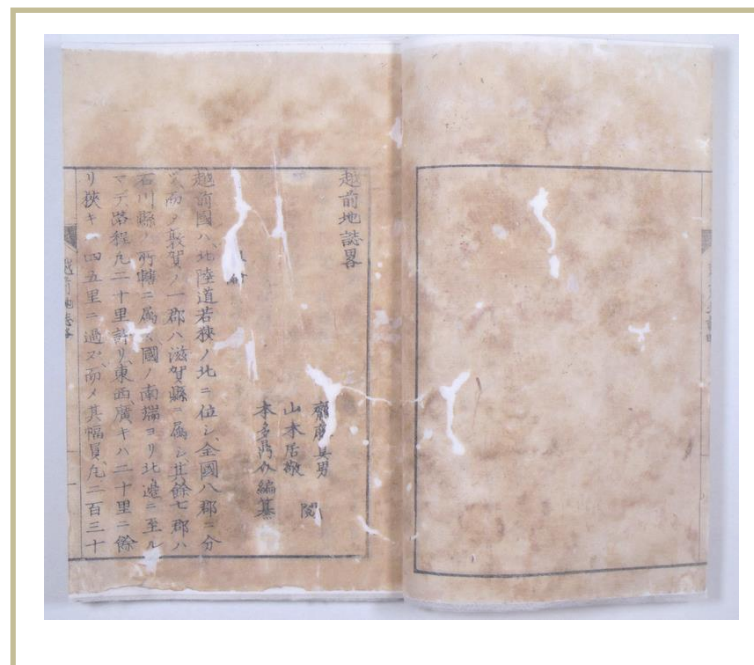 越前地誌畧
山本居敬 閲
本多 編纂
越前國ハ、北陸道若狹ノ北ニ位シ、全國八郡ニ分
而メ敦賀ノ一郡ハ滋賀縣ニ属シ其餘七郡ハ
石川縣ノ所轄ニ属ス、國ノ南端ヨリ北邊ニ至ル
マデ路程凡二十里許リ、東西廣キハ二十里ニ餘
リ狹キハ四五里ニ過ズ、而メ其幅員凡二百三十
越前地誌畧